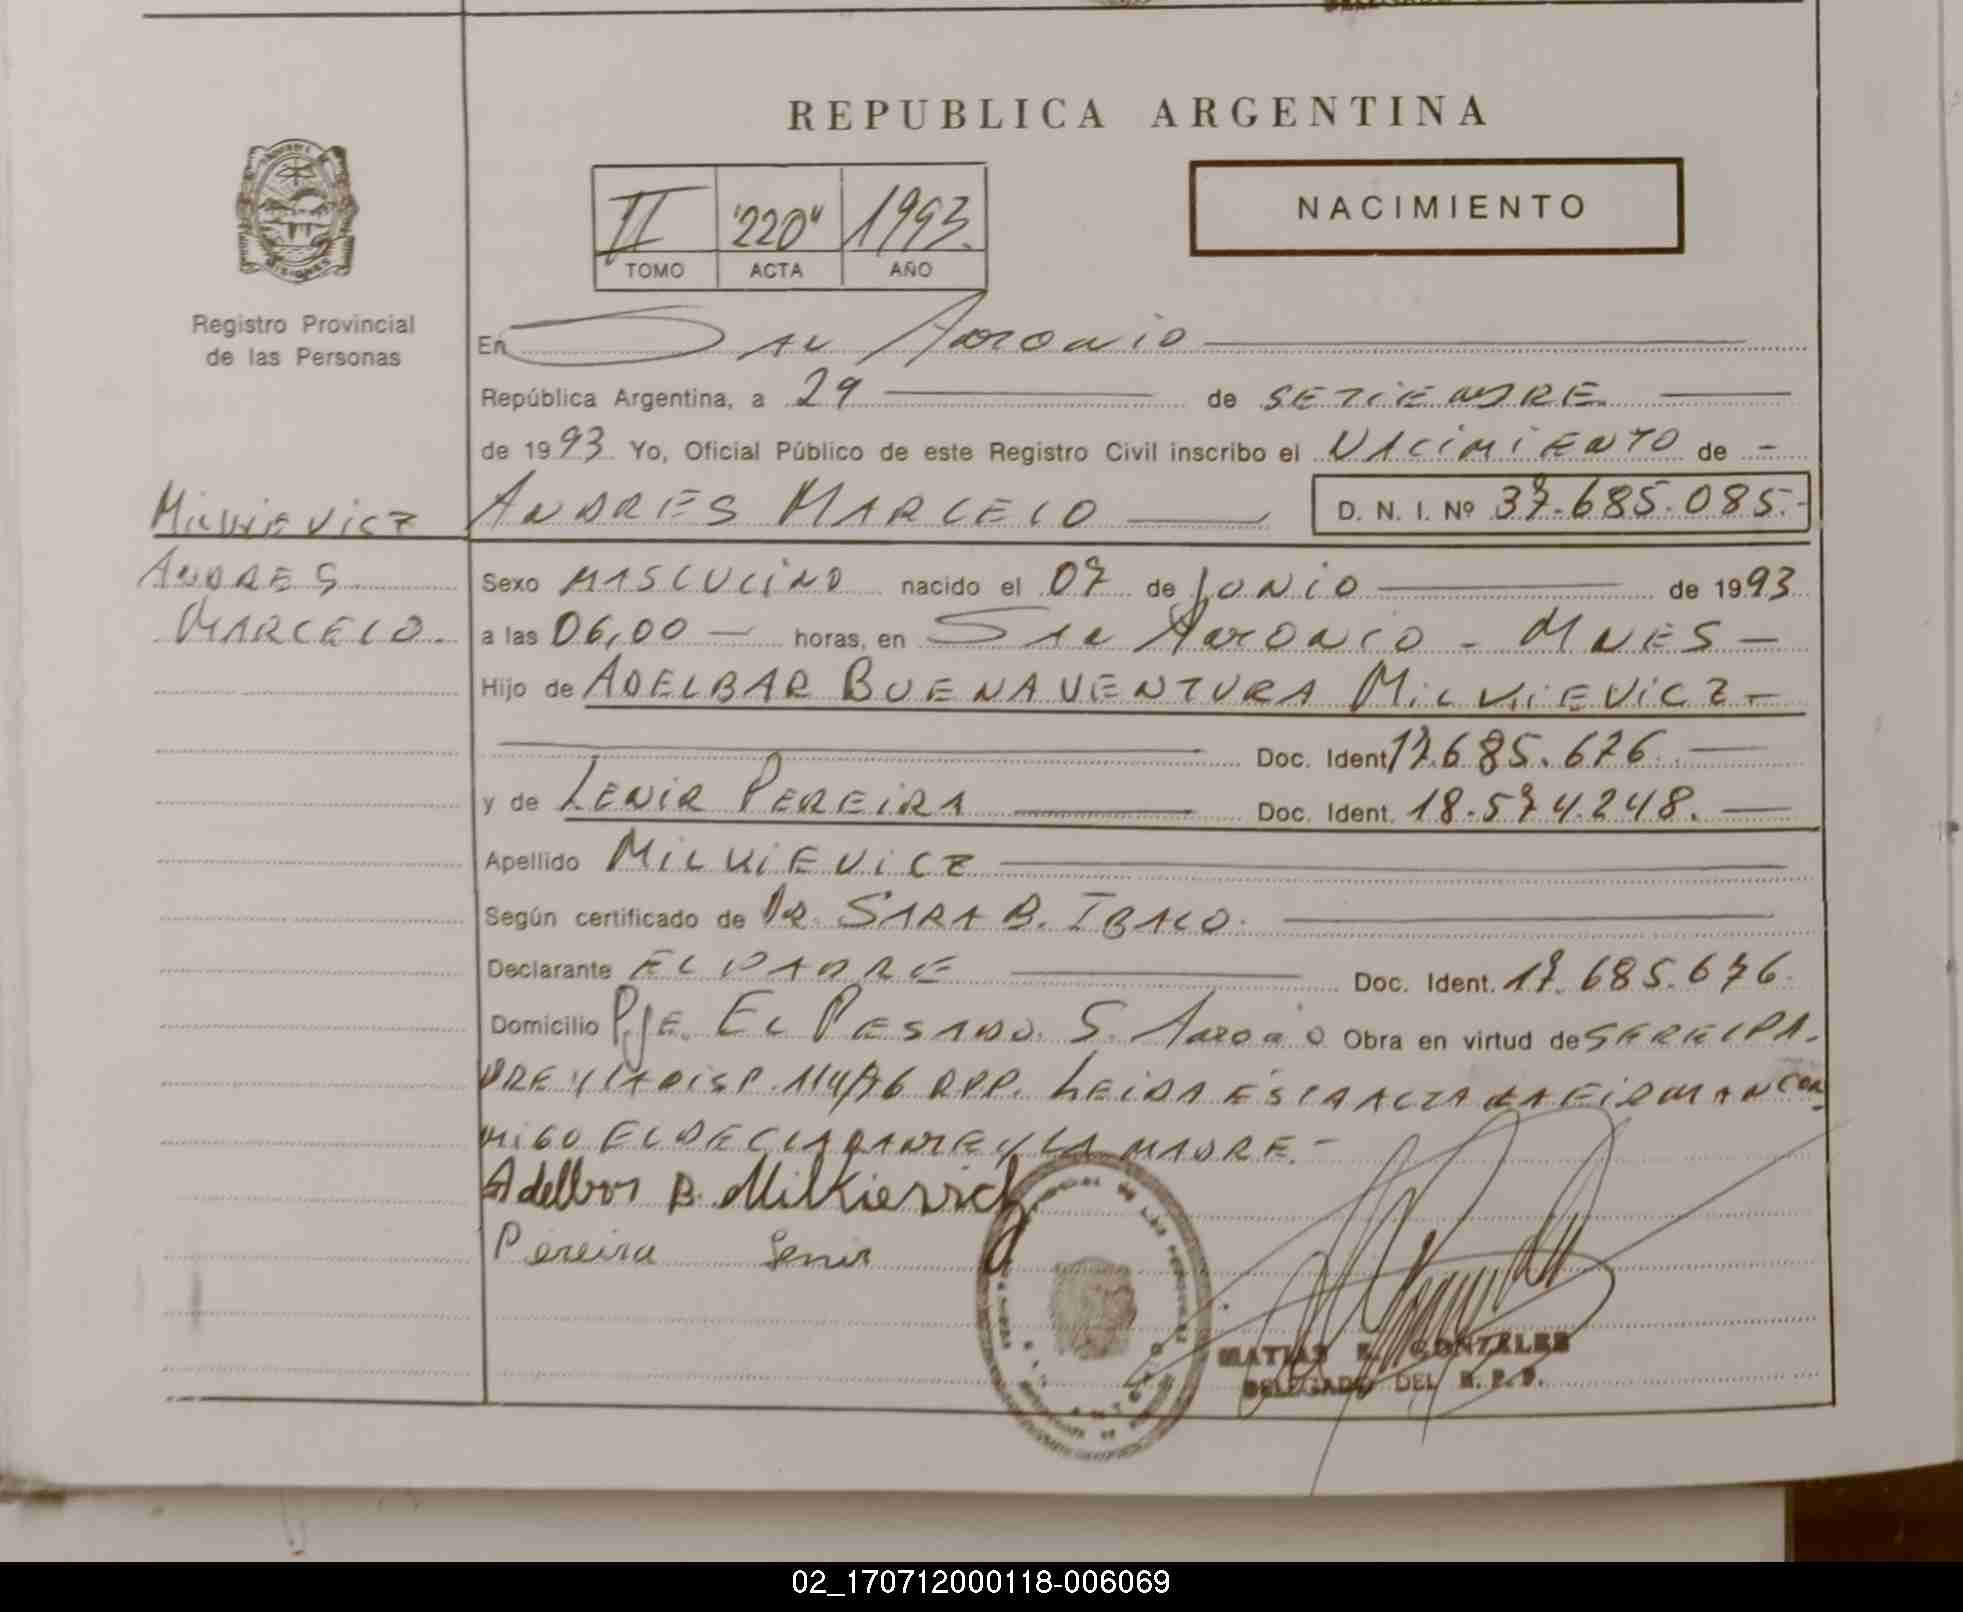 REPUBLICA ARGENTINA
II "220" 1993.
TOMO ACTA AÑO
NACIMIENTO
Registro Provincial
de las Personas
En San Antonio
República Argentina, a 29 de SETIEMBRE
de 1993 Yo, Oficial Público de este Registro Civil inscribo el NACIMIENTO de -
MILKIEVICZ
ANDRES
MARCELO.
ANDRES MARCELO D. N. I. Nº 37.685.085.-
Sexo MASCULINO nacido el 07 de JUNIO de 1993
a las 06,00 — horas, en San Antonio - MNES -
Hijo de ADELBAR BUENAVENTURA MILKIEVICZ -
Doc. Ident. 17.685.676.
y de LENIR PEREIRA Doc. Ident. 18.574.248.
Apellido MILKIEVICZ
Según certificado de DR. SARA B. IBALO.
Declarante EL PADRE Doc. Ident. 17.685.676.
Domicilio Pje. EL PESADO. S. Antonio Obra en virtud de SER EL PA-
DRE Y LA DISP. 114/76 RPP. LEIDA ESTA ACTA LA FIRMAN CON
MIGO EL DECLARANTE Y LA MADRE.-
Adelbar B. Milkievicz
Pereira Lenir
MATIAS E. GONZALES
DELEGADO DEL R. P. P.
02_170712000118-006069